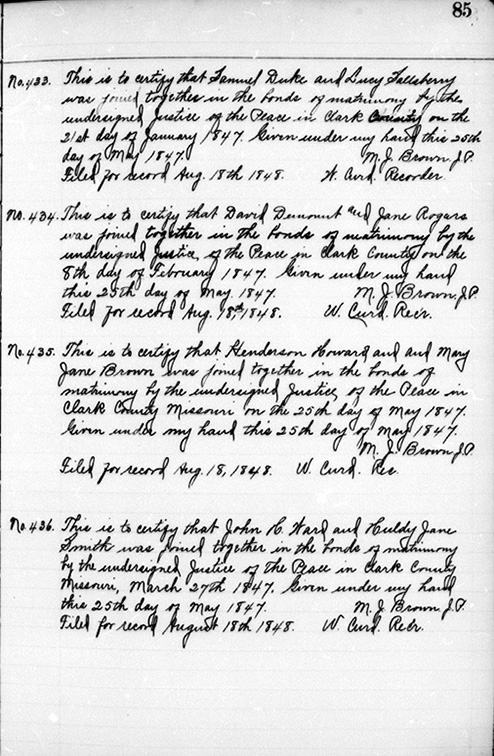 85
No. 433. This is to certify that Samuel Duke and Lucy Sallsberry
was joined together in the bonds of matrimony by the
undersigned Justice of the Peace in Clark County on the
21st day of January 1847. Given under my hand this 25th
day of May 1847. M. J. Brown J.P.
Filed for record Aug. 18th 1848. W. Curd. Recorder.
No. 434. This is to certify that David Demount and Jane Rogars
was joined together in the bonds of matrimony by the
undersigned Justice, of the Peace in Clark County on the
8th day of February 1847. Given under my hand
this 25th day of May. 1847. M. J. Brown. J.P.
Filed for record Aug. 18th 1848. W. Curd. Recr.
No. 435. This is to certify that Henderson Howard and and Mary
Jane Brown was joined together in the bonds of
matrimony by the undersigned Justice, of the Peace in
Clark County Missouri on the 25th day of May 1847.
Given under my hand this 25th day of May 1847.
M. J. Brown J.P.
Filed for record Aug. 18, 1848. W. Curd. Rec.
No. 436. This is to certify that John H. Ward and Huldy Jane
Smith was joined together in the bonds of matrimony
by the undersigned Justice of the Peace in Clark County
Missouri, March 27th 1847. Given under my hand
this 25th day of May 1847. M. J. Brown J.P.
Filed for record August 18th 1848. W. Curd. Recr.